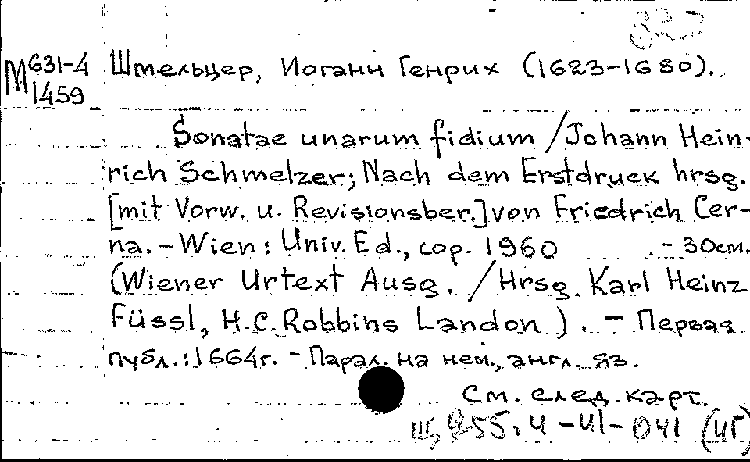 М 631-4
1459
Штельцер, Иоганн Генрих (1623-1680).
Sonatae unarum fidium / Johann Hein-
rich Schmelzer; Nach dem Erstdruck hrsg.
[mit Vorw. u. Revisionsber.] von Friedrich Cer-
na. - Wien: Univ. Ed., cop. 1960 - 30см.
(Wiener Urtext Ausg. / Hrsg. Karl Heinz
Füssl, H.C. Robbins Landon). - Первая
публ.: 1664г. - Парал. на нем., англ. яз.
См. след. карт.